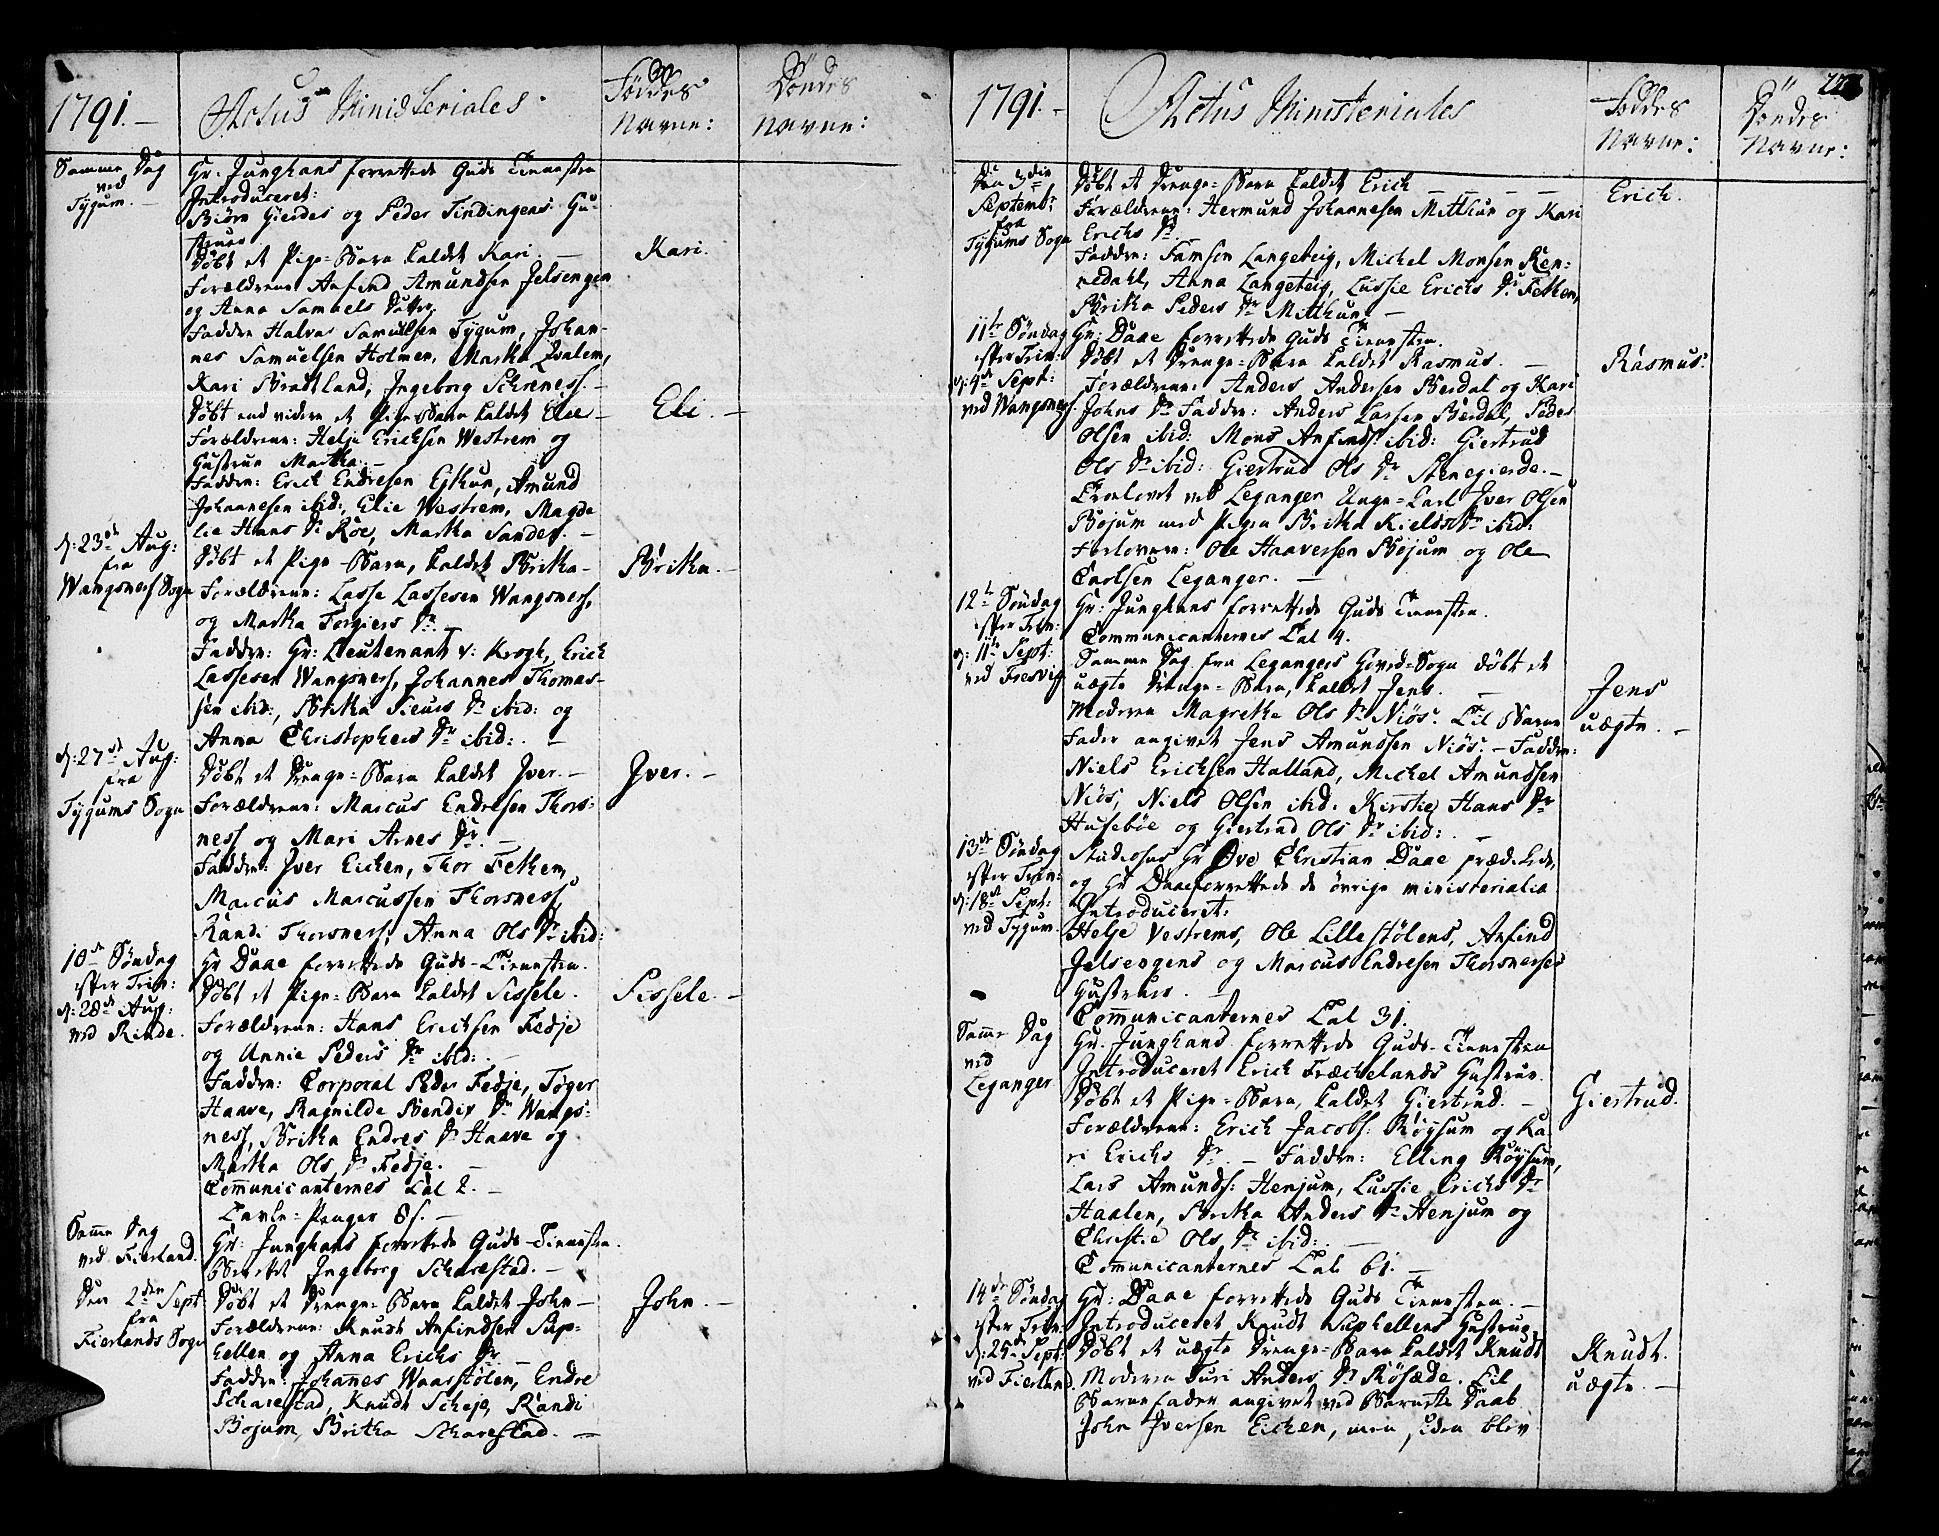 1791.
Actus Ministeriales.
Föddes
Navne:
Döndes
Navne:
Samme Dag
ved
Tygum.
Hr. Junghans forrettede Guds Tienesten
Introduceret:
Biörn Gierdes og Peder Tindingens Hu-
struer
Döbt et Pige-Barn kaldet Kari.
Kari.
Forældrene Anfind Amundsen Jelsengen
og Anna Samuels Datter
Faddre Halvor Samuelsen Tygum, Johan-
nes Samuelsen Holmen, Martha Qvalem,
Kari Bradtland, Ingeborg
Döbt end videre et Pige-Barn kaldet Elie
Eli.
Forældrene: Helje Ericksen Westrem og
Hustrue Martha.
Faddre: Erich Endresen Eithun, Amund
Johannesen ibid:, Elie Westrem, Magde
lie Hans Dr. Röe, Martha Sandes.
d: 23de Aug:
fra
Wangsness Sogn
Döbt et Pige-Barn, kaldet Britha
Britha.
Forældrene: Lasse Lassesen Wangsness,
og Martha Torgiers Dr.
Faddre: Hr: Lieutenant v: Krogh, Erich
Lassesen Wangsness, Johannes Thomas-
sen ibid:, Britha Siurs Dr. ibid: og
Anna Christophers Dr. ibid:
d: 27de Aug:
fra
Tygums Sogn
Döbt et Drenge-Barn kaldet Jver.
Jver.
Forældrene: Marcus Endresen Thors-
ness og Mari Arnes Dr.
Faddre: Jver Eichen, Thor Fethem,
Marcus Marcussen Thorsness,
Randi Thorsness, Anna Ols Dr. ibid:
10de Söndag
efter Trin:
d: 28de Aug:
ved Rinde.
Hr Daae forrettede Guds-Tienesten.
Döbt et Pige-Barn kaldet Sissele.
Sissele.
Forældrene: Hans Erichsen Fedje
og Unnie Peders Dr. ibid:
Faddre: Corporal Peder Fedje, Töger
Haave, Ragnilde Bendix Dr. Wangs-
ness, Britha Endres Dr. Haave og
Martha Ols Dr. Fedje.
Communicanternes Tal 2.
Tavle-Penger 8 s.
Samme Dag
ved Fierland.
Hr. Junghans forrettede Guds-Tienesten.
Ingeborg Scharestad.
Den 2den Sept
fra
Fierlands Sogn
Döbt et Drenge-Barn kaldet John
John.
Forældrene: Knudt Anfindsen Sup-
hellen og Anna Erichs Dr.
Faddre: Johannes Waarstölen, Endre
Scharestad, Knudt Scheje, Randi
Bojum, Britha Scharestad.
1791.
Actus Ministeriales
Föddes
Navne:
Döndes
Navne:
Den 3die
Septembr
fra
Tygums Sogn
Döbt et Drenge-Barn kaldet Erich
Erich.
Forældrene: Hermund Johannesen Mitthun og Kari
Erichs Dr.
Faddre: Samson Langeteig, Michel Monsen Ren-
nedahl, Anna Langeteig, Lussie Erichs Dr. Fethem,
Britha Peders Dr. Mitthun.
11te Söndag
efter Trin:
d: 4de Sept:
ved Wangsness.
Hr: Daae forrettede Guds Tienesten.
Döbt et Drenge-Barn kaldet Rasmus.
Rasmus.
Forældrene: Anders Andersen Berdal og Kari
Johns Dr. Faddre: Anders Lassen Berdal, Peder
Olsen ibid: Mons Anfinds: ibid: Giertrud
Ols Dr. ibid: Giertrud Ols Dr. Stenegierde.
Trolovet ved Leganger Unge-Karl Jver Olsen
Böjum med Pigen Britha Kields Dr. ibid:
Forlovere: Ole Haaversen Böjum og Ole
Carlsen Leganger.
12te Söndag
efter Trin:
d: 11te Sept:
ved Fresvig
Hr: Junghans forrettede Guds Tienesten.
Communicanternes Tal 4.
Samme Dag fra Legangers Hoved-Sogn döbt et
uægte Drenge-Barn, kaldet Jens.
Jens
uægte.
Moderen Magrethe Ols Dr. Niös. Til Barne
Fader angivet Jens Amundsen Niös. Faddre:
Niels Ericksen Halland, Michel Amundsen
Niös, Niels Olsen ibid. Kirstie Hans Dr
Huseböe og Giertrud Ols Dr ibid:
13de Söndag
efter Trin:
d: 18de Sept:
ved Tygum.
Studiosus Hr Ove Christian Daae prædikede,
og Hr Daae forrettede de övrige ministerialia
Introduceret:
Helje Vestrems, Ole Lillestölens, Anfind
Jelsengens og Marcus Endresen Thorsnesses
Hustruer.
Communicanternes Tal 31.
Samme Dag
ved
Leganger
Hr. Junghans forrettede Guds-Tienesten
Introduceret Erich Fræchelands Hustrue.
Döbt et Pige-Barn, kaldet Giertrud.
Giertrud.
Forældrene: Erich Jacobs: Röysum og Ka
ri Erichs Dr. Faddre: Elling Röysum,
Lars Amunds: Henjum, Lussie Erichs Dr
Haalen, Britha Anders Dr. Henjum og
Christie Ols Dr ibid:
Communicanternes Tal 61.
14de Söndag
efter Trin:
d: 25de Sept:
ved Fierland.
Hr: Daae forrettede Guds Tienesten.
Introduceret Knudt Suphellens Hustrue
Döbt et uægte Drenge-Barn kaldet Knudt
Knudt.
uægte.
Moderen Turi Anders Dr. Rösæde. Til
Barnefader angivet ved Barnets Daab
John Jversen Eichen, men siden blev